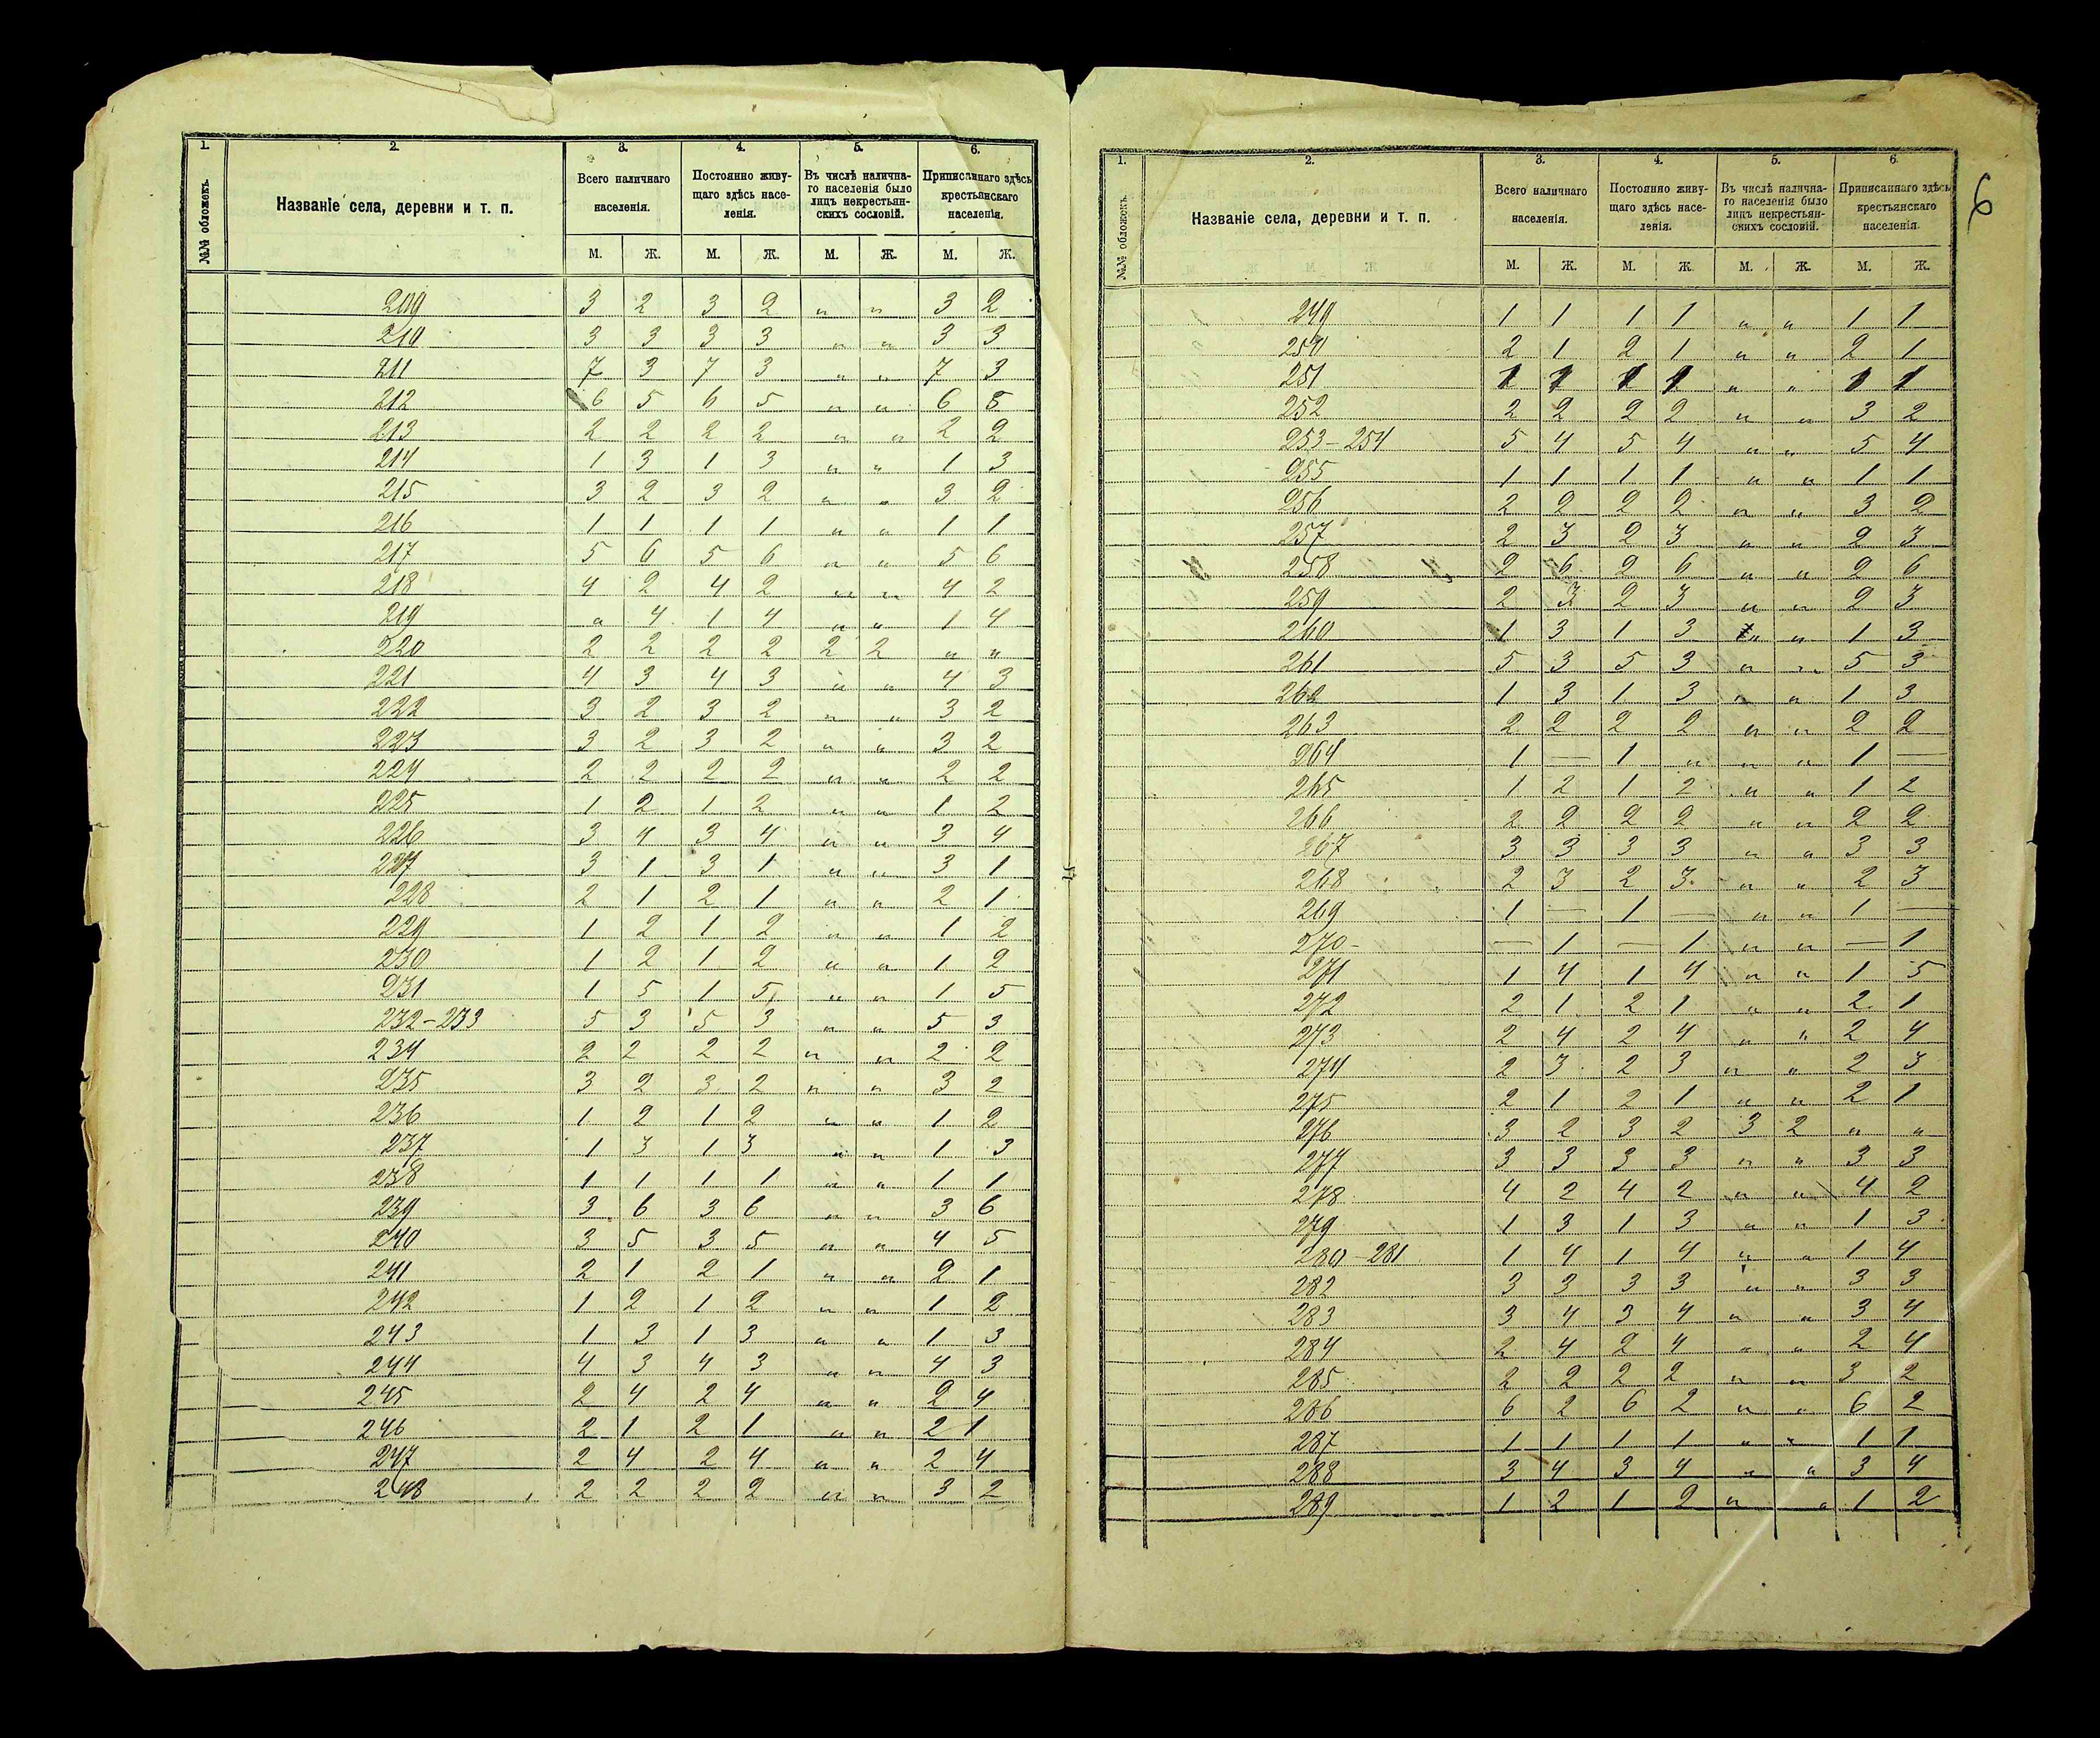 1. 2. 3. 4. 5. 6.
№№ обложекъ. Названіе села, деревни и т. п. Всего наличнаго населенія. Постоянно живущаго здѣсь населенія. Въ числѣ наличнаго населенія было лицъ некрестьянскихъ сословій. Приписаннаго здѣсь крестьянскаго населенія.
М. Ж. М. Ж. М. Ж. М. Ж.
209 3 2 3 2 „ „ 3 2
210 3 3 3 3 „ „ 3 3
211 7 3 7 3 „ „ 7 3
212 6 5 6 5 „ „ 6 5
213 2 2 2 2 „ „ 2 2
214 1 3 1 3 „ „ 1 3
215 3 2 3 2 „ „ 3 2
216 1 1 1 1 „ „ 1 1
217 5 6 5 6 „ „ 5 6
218 4 2 4 2 „ „ 4 2
219 „ 4 1 4 „ „ 1 4
220 2 2 2 2 2 2 „ „
221 4 3 4 3 „ „ 4 3
222 3 2 3 2 „ „ 3 2
223 3 2 3 2 „ „ 3 2
224 2 2 2 2 „ „ 2 2
225 1 2 1 2 „ „ 1 2
226 3 4 3 4 „ „ 3 4
227 3 1 3 1 „ „ 3 1
228 2 1 2 1 „ „ 2 1
229 1 2 1 2 „ „ 1 2
230 1 2 1 2 „ „ 1 2
231 1 5 1 5 „ „ 1 5
232-233 5 3 5 3 „ „ 5 3
234 2 2 2 2 „ „ 2 2
235 3 2 3 2 „ „ 3 2
236 1 2 1 2 „ „ 1 2
237 1 3 1 3 „ „ 1 3
238 1 1 1 1 „ „ 1 1
239 3 6 3 6 „ „ 3 6
240 3 5 3 5 „ „ 4 5
241 2 1 2 1 „ „ 2 1
242 1 2 1 2 „ „ 1 2
243 1 3 1 3 „ „ 1 3
244 4 3 4 3 „ „ 4 3
245 2 4 2 4 „ „ 2 4
246 2 1 2 1 „ „ 2 1
247 2 4 2 4 „ „ 2 4
248 2 2 2 2 „ „ 3 2
6
1. 2. 3. 4. 5. 6.
№№ обложекъ. Названіе села, деревни и т. п. Всего наличнаго населенія. Постоянно живущаго здѣсь населенія. Въ числѣ наличнаго населенія было лицъ некрестьянскихъ сословій. Приписаннаго здѣсь крестьянскаго населенія.
М. Ж. М. Ж. М. Ж. М. Ж.
249 1 1 1 1 „ „ 1 1
250 2 1 2 1 „ „ 2 1
251 1 1 1 1 „ „ 1 1
252 2 2 2 2 „ „ 3 2
253-254 5 4 5 4 „ „ 5 4
255 1 1 1 1 „ „ 1 1
256 2 2 2 2 „ „ 3 2
257 2 3 2 3 „ „ 2 3
258 2 6 2 6 „ „ 2 6
259 2 3 2 3 „ „ 2 3
260 1 3 1 3 „ „ 1 3
261 5 3 5 3 „ „ 5 3
262 1 3 1 3 „ „ 1 3
263 2 2 2 2 „ „ 2 2
264 1 — 1 „ „ „ 1 —
265 1 2 1 2 „ „ 1 2
266 2 2 2 2 „ „ 2 2
267 3 3 3 3 „ „ 3 3
268 2 3 2 3 „ „ 2 3
269 1 — 1 — „ „ 1 —
270 — 1 — 1 „ „ — 1
271 1 4 1 4 „ „ 1 5
272 2 1 2 1 „ „ 2 1
273 2 4 2 4 „ „ 2 4
274 2 3 2 3 „ „ 2 3
275 2 1 2 1 „ „ 2 1
276 3 2 3 2 3 2 „ „
277 3 3 3 3 „ „ 3 3
278 4 2 4 2 „ „ 4 2
279 1 3 1 3 „ „ 1 3
280-281 1 4 1 4 „ „ 1 4
282 3 3 3 3 „ „ 3 3
283 3 4 3 4 „ „ 3 4
284 2 4 2 4 „ „ 2 4
285 2 2 2 2 „ „ 3 2
286 6 2 6 2 „ „ 6 2
287 1 1 1 1 „ „ 1 1
288 3 4 3 4 „ „ 3 4
289 1 2 1 2 „ „ 1 2